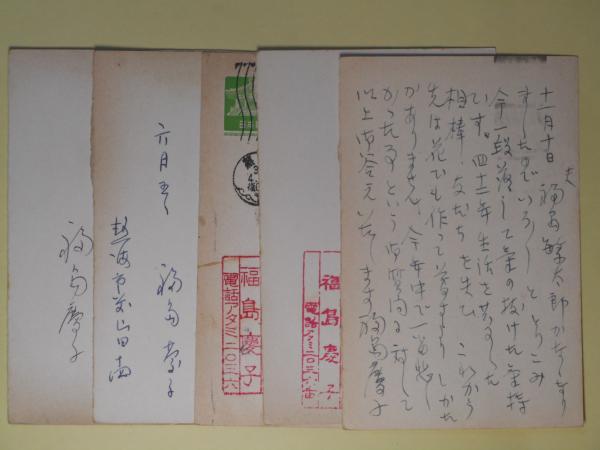 十一月十日 夫 福島繁太郎がなくなり
ましたのでいろいろととりこみ
今一段落して気の抜けた気持
です。四十一年生活を共にした
相棒、友だちを失ひ これから
先は花でも作って暮すよりしかた
がありません。今年中で一番悲し
かった事という御質問に対して
以上御答えいたします 福島慶子
福島慶子
電話アタミ二〇三六番
福島慶子
電話アタミ二〇三六
六月五日 福島慶子
熱海市
福島慶子